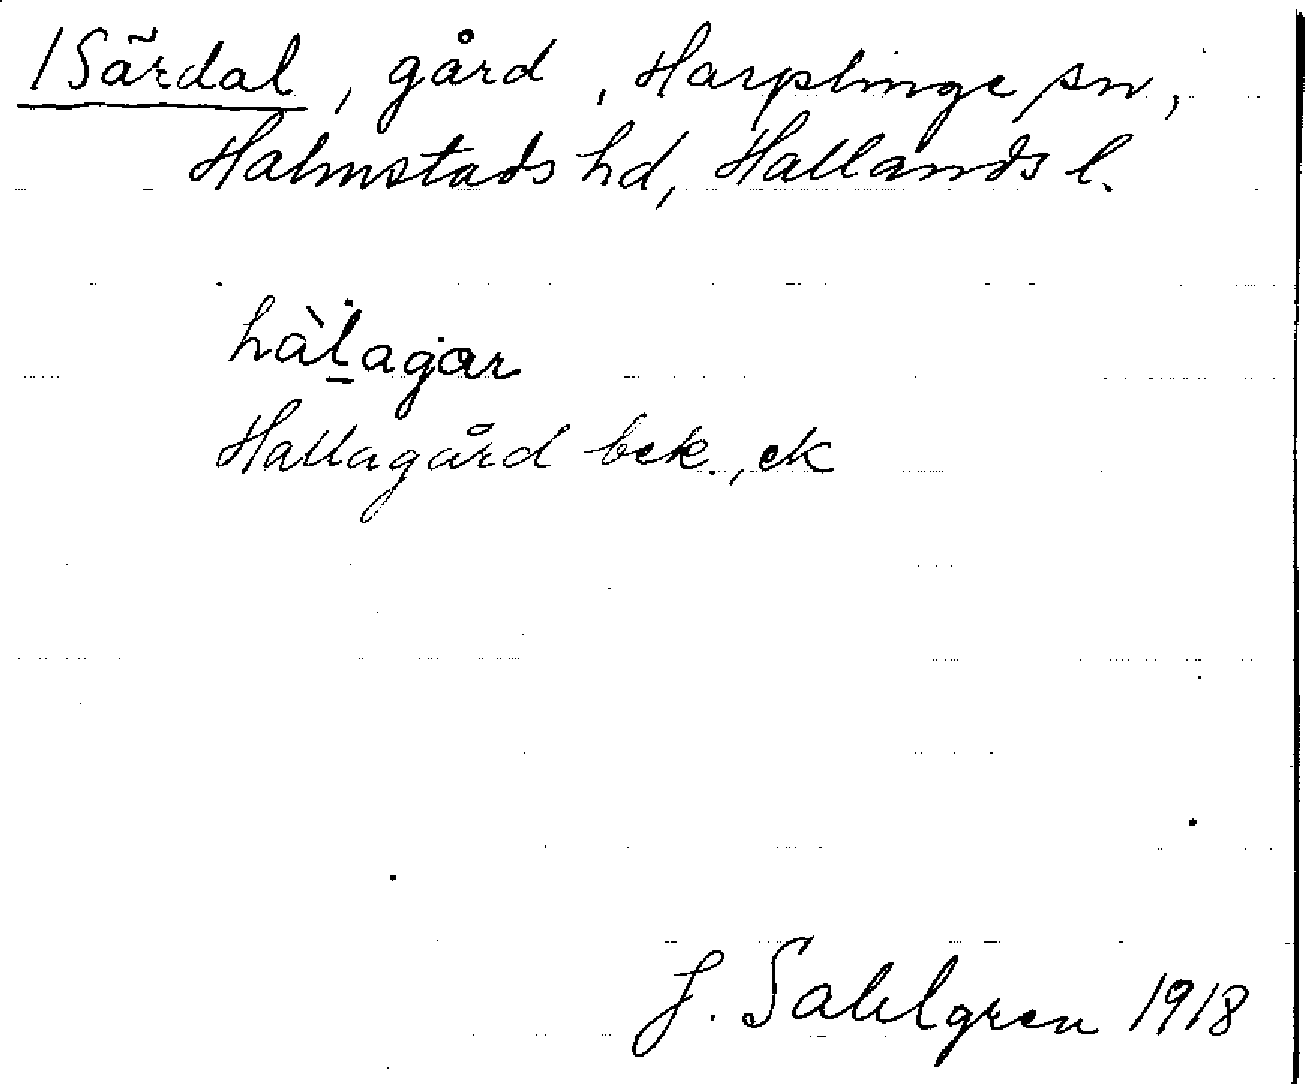 /Särdal, gård, Harplinge sn,
Halmstads hd, Hallands l.
hàl̠agar
Hallagård bek., ek
J. Sahlgren 1918